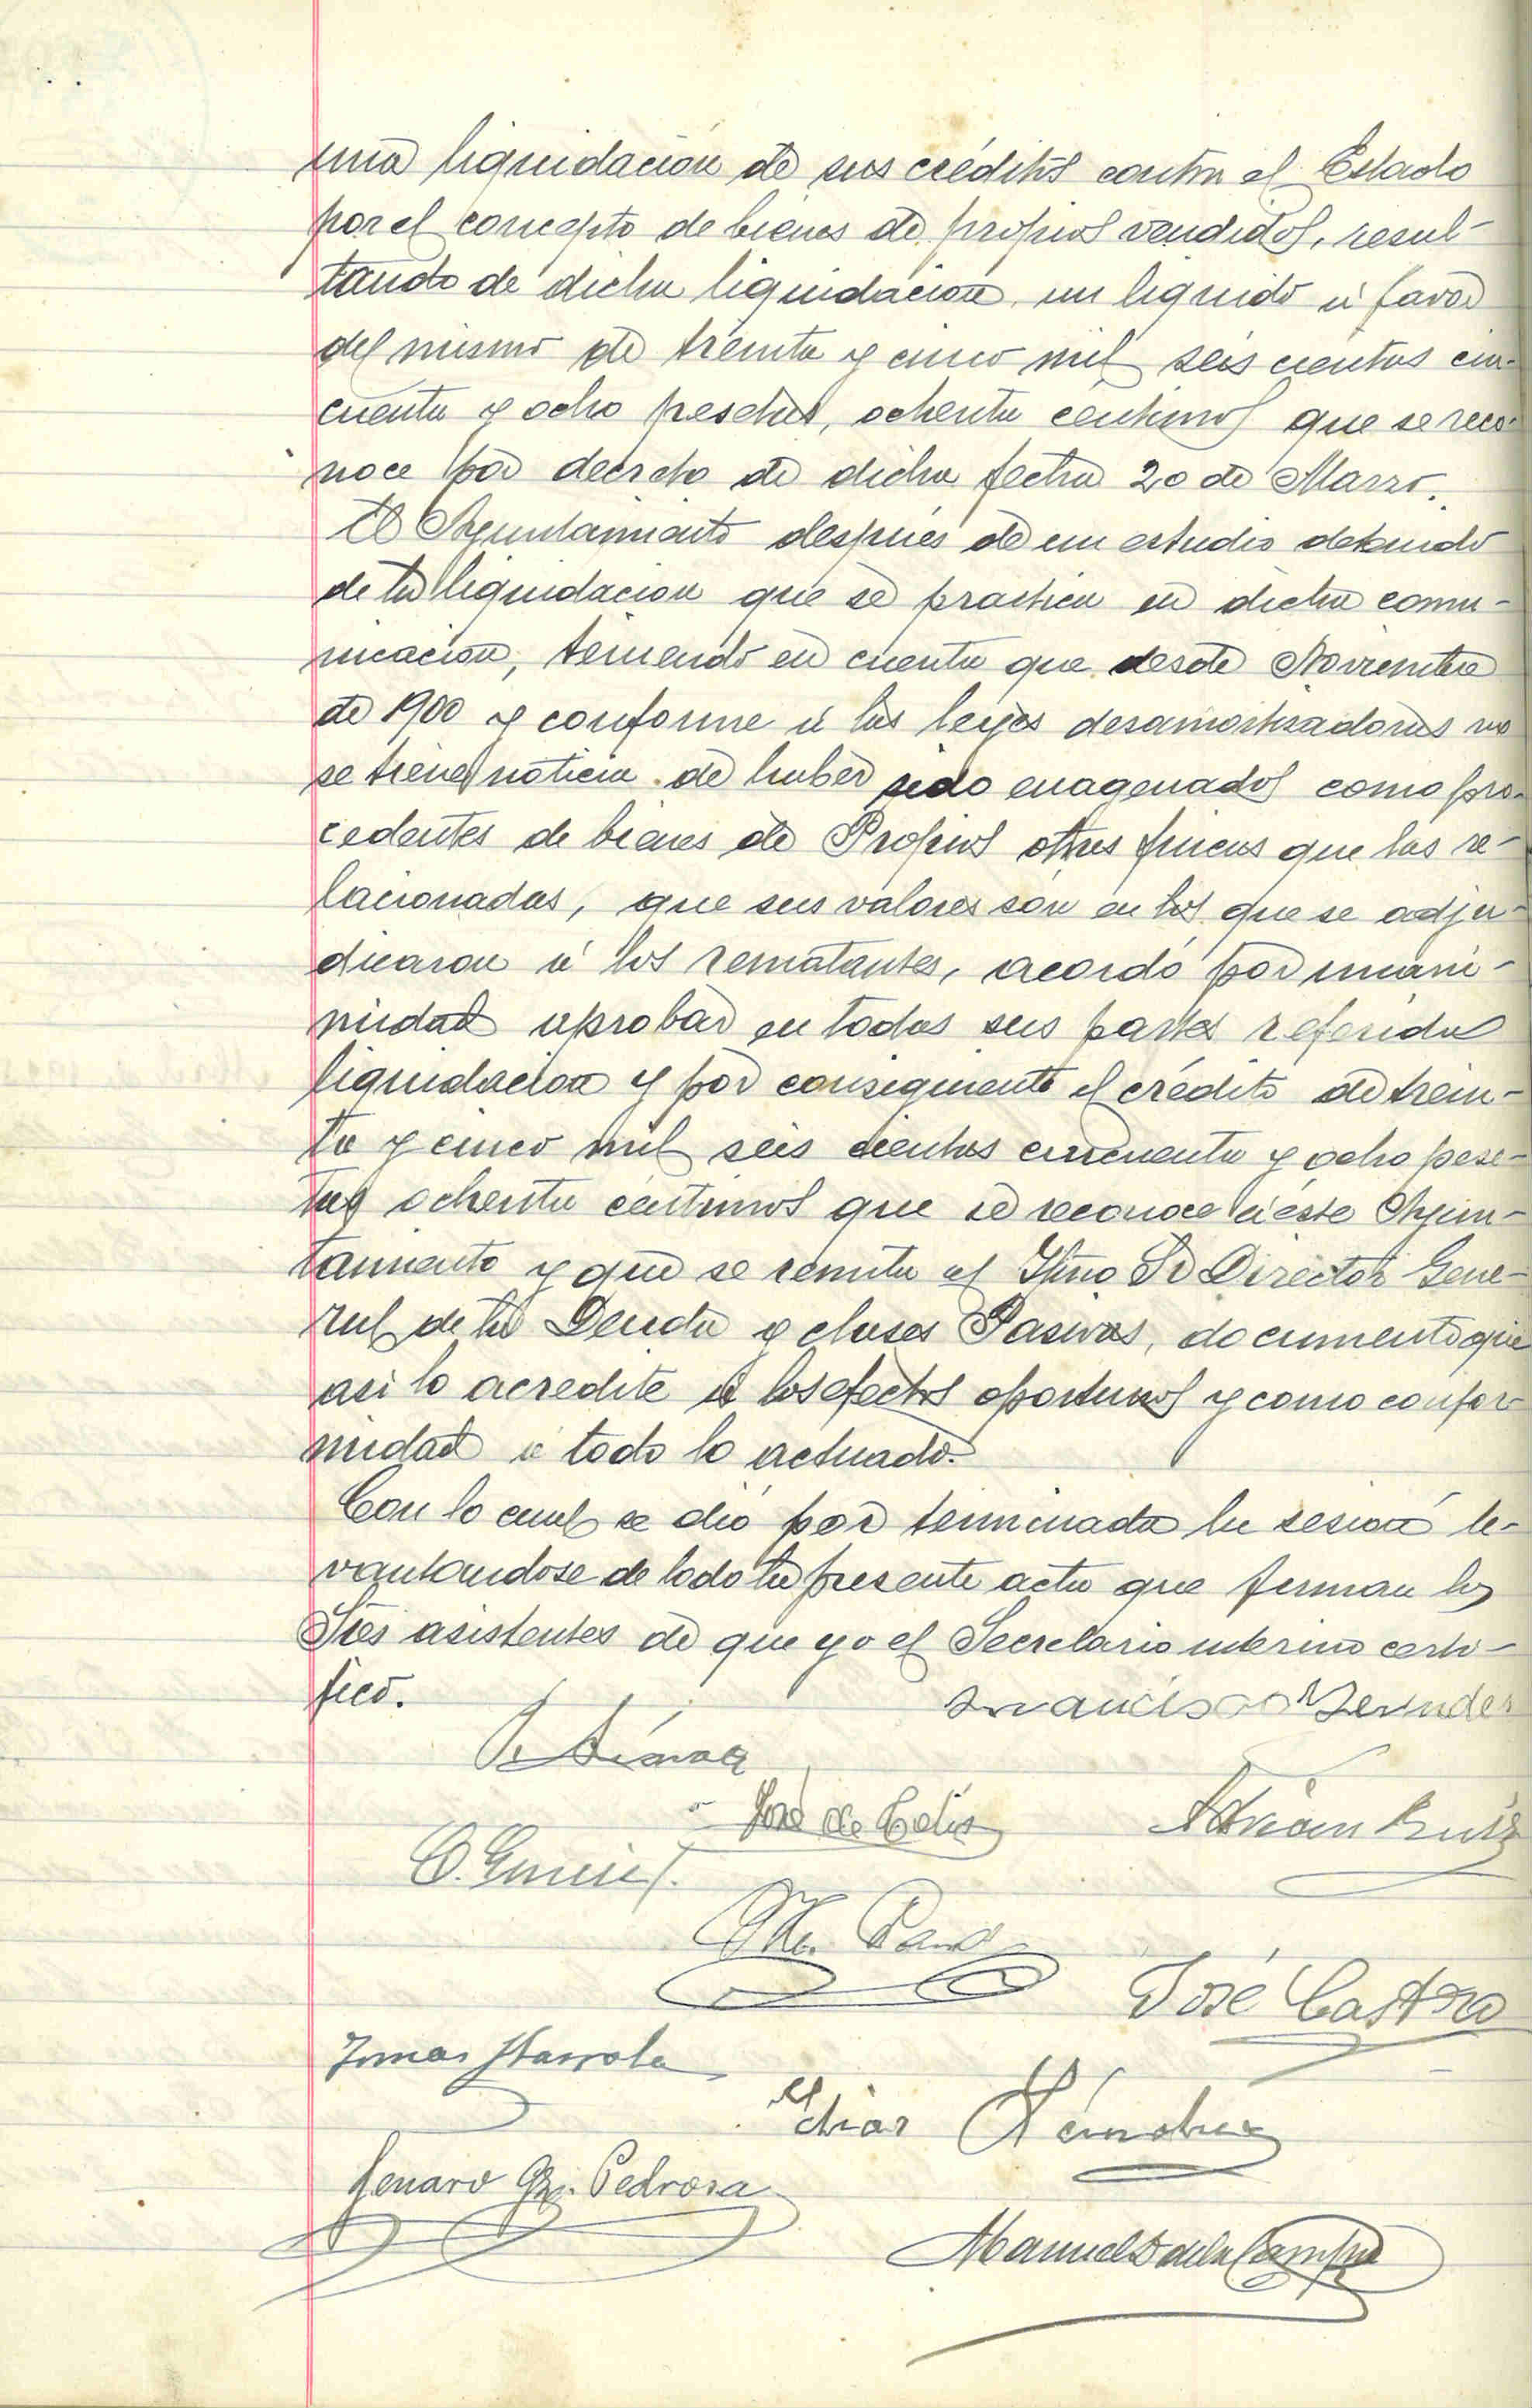 una liquidación de sus créditos contra el Estado
por el concepto de bienes de propios vendidos, resul-
tando de dicha liquidacion un liquido á favor
del mismo de treinta y cinco mil seis cientas cin-
cuenta y ocho pesetas, ochenta céntimos que se reco-
noce por decreto de dicha fecha 20 de Marzo.
El Ayuntamiento después de un estudio detenido
de la liquidacion que se practica en dicha comu-
nicacion, teniendo en cuenta que desde Noviembre
de 1900 y conforme á las leyes desamortizadoras no
se tiene noticia de haber sido enagenados como pro-
cedentes de bienes de Propios otras fincas que las re-
lacionadas, que sus valores son en los que se adju-
dicaron á los rematantes, acordó por unani-
midad aprobar en todas sus partes referida
liquidacion y por consiguiente el crédito de trein-
ta y cinco mil seis cientas cincuenta y ocho pese-
tas ochenta céntimos que se reconoce á éste Ayun-
tamiento y que se remita al Iltmo Sr Director Gene-
ral de la Deuda y clases Pasivas, documento que
asi lo acredite á los efectos oportunos y como confor
midad á todo lo actuado.
Con lo cual se dió por terminada la sesion le-
vantandose de todo la presente acta que firman los
Sres asistentes de que yo el Secretario interino certi-
fico.
Francisco
José de Celis
Adrián Ruiz
José Castro
Tomas
Genaro Gz. Pedrosa
Manuel de la Campa